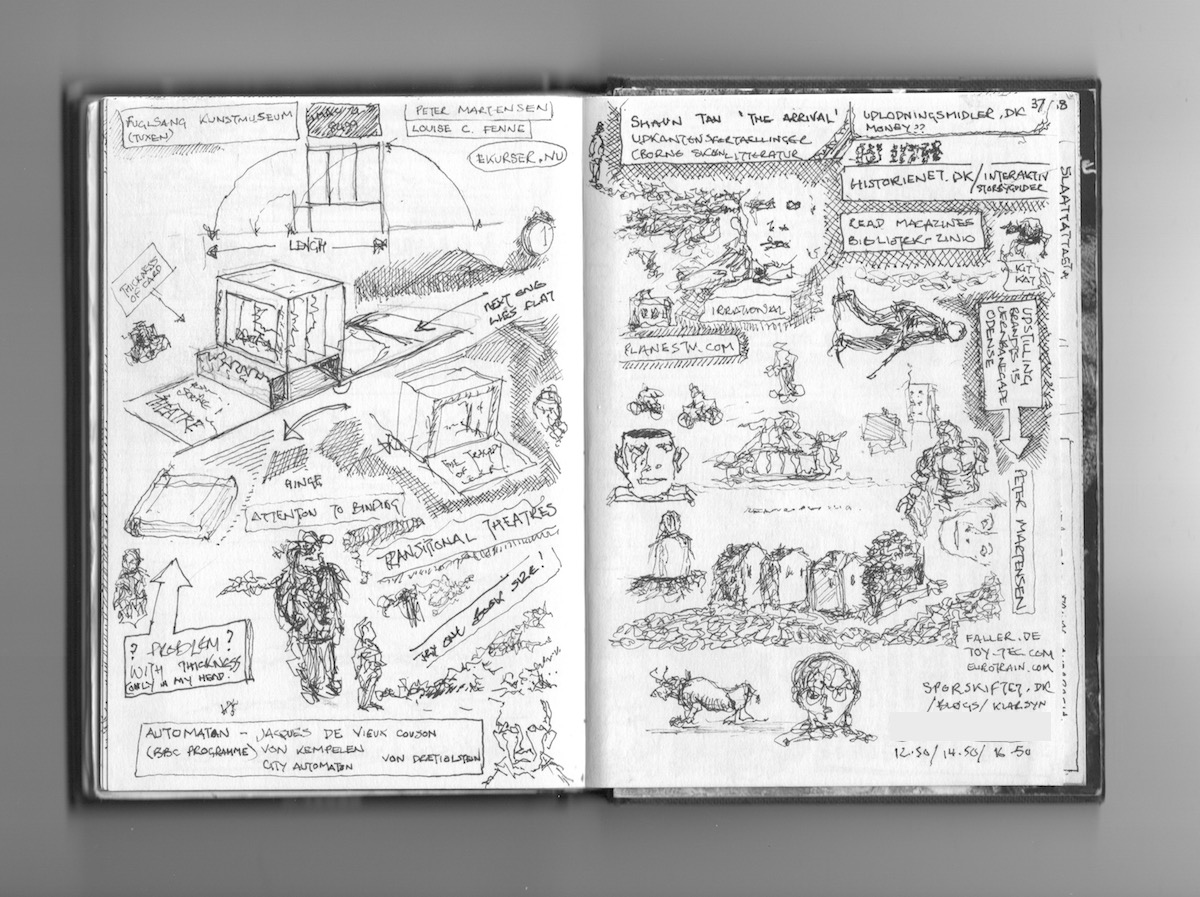 FUGLSANG KUNSTMUSEUM
(TUXEN)
PETER MARTENSEN
LOUISE C. FENNE
EKURSER.NU
LENGTH
THICKNESS
OF CARD
NEXT ONE
LIES FLAT
THEATRE
HINGE
ATTENTON TO BINDING
TRANSITIONAL THEATRES
TRY ONE BOOK SIZE!
? PROBLEM?
WITH THICKNESS
ONLY IN MY HEAD.
AUTOMATON - JACQUES DE VIEUX COUSON
(BBC PROGRAMME) VON KEMPELEN
CITY AUTOMATON
SHAUN TAN 'THE ARRIVAL'
UDKANTENSFORTAELLINGER
(BORNE SKØNLITTERATUR
UDLODNINGSMIDLER.DK
MONEY??
HISTORIENET.DK/INTERAKTIV
STORBYGUIDER
READ MAGAZINES
BIBLIOTEK-ZINIO
KIT
KAT
IRRATIONAL
PLANESTV.COM
UDSTILLING
BRANDTS 13
JERNBANEGADE
ODENSE
PETER MARTENSEN
FALLER.DE
TOY-TEC.COM
EUROTRAIN.COM
SPORSKIFTET.DK
/BLOGS/KLARSYN
12.50/14.50/16.50